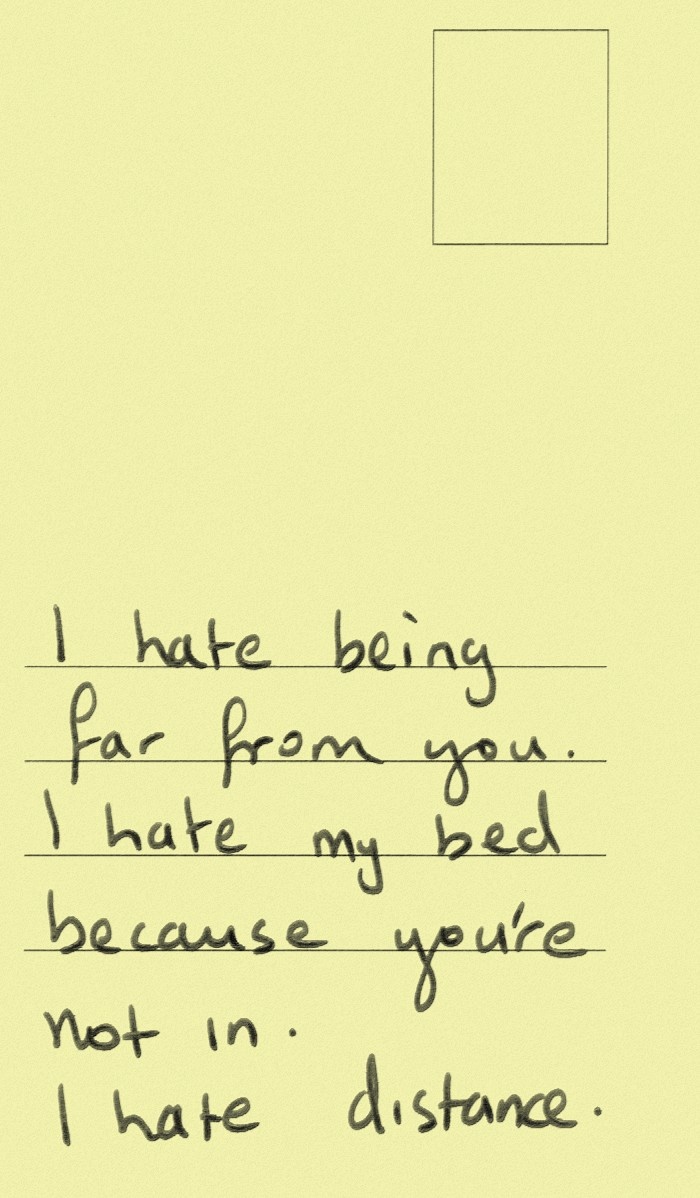 I hate being
far from you.
I hate my bed
because you're
not in.
I hate distance.